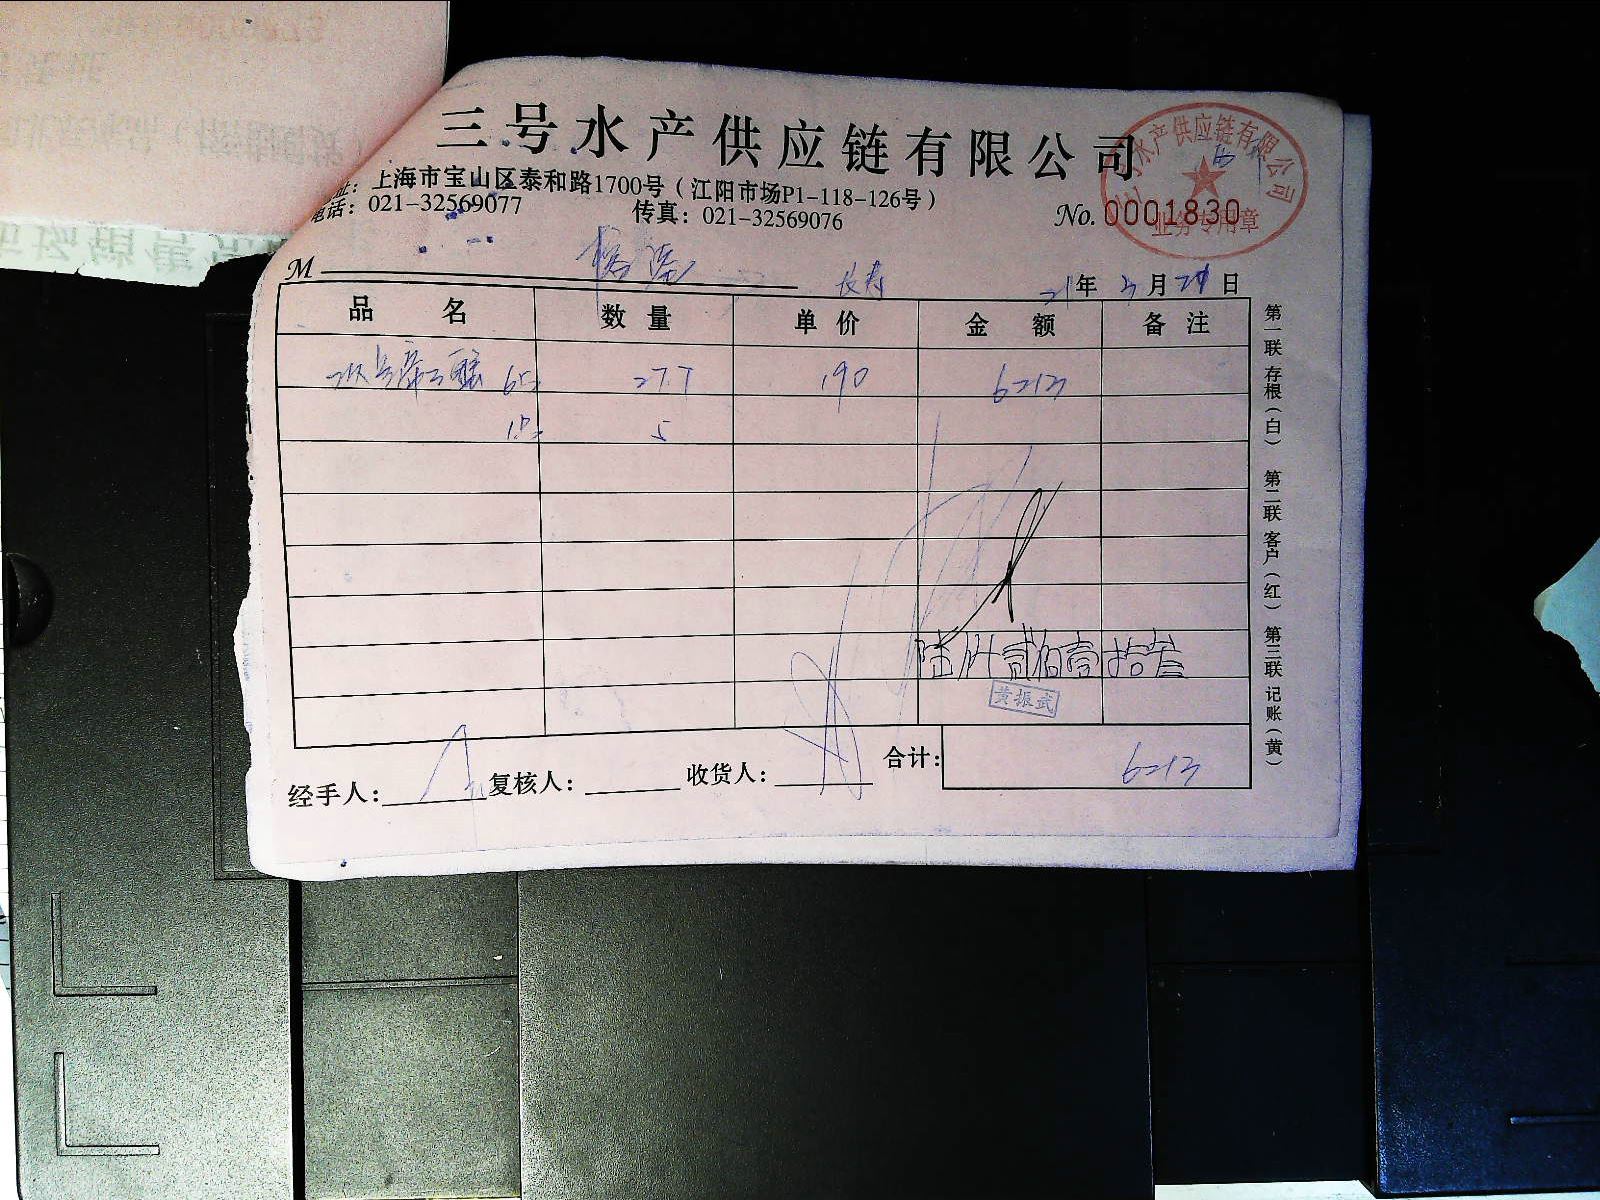 三号水产供应链有限公司
址：上海市宝山区泰和路1700号（江阳市场P1-118-126号）
电话：021-32569077 传真：021-32569076
No. 0001830
水产供应链有限公司
业务专用章
M
长寿 21年3月21日
品名 数量 单价 金额 备注
27.7 190 6213
5
陆仟贰佰壹拾叁
黄振武
经手人： 复核人： 收货人： 合计： 6213
第一联 存根（白） 第二联 客户（红） 第三联 记账（黄）